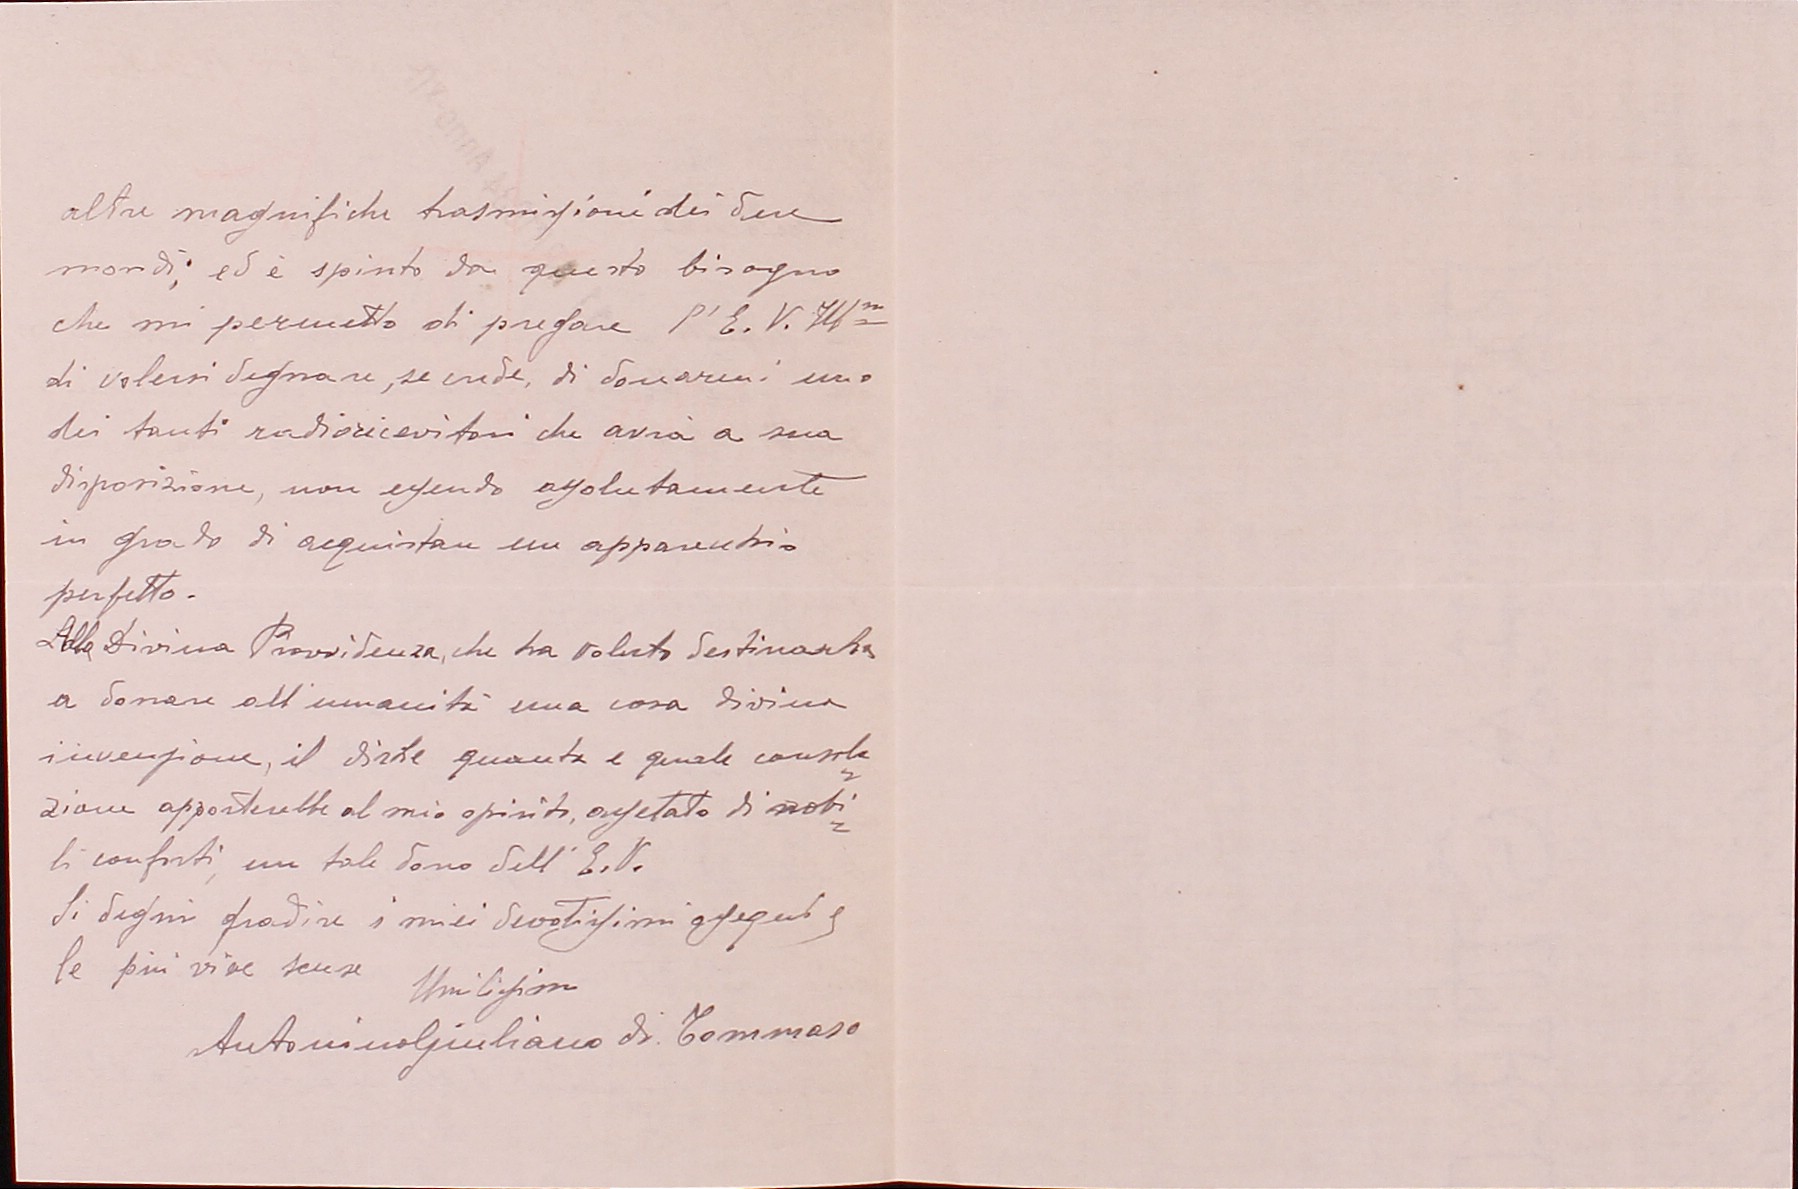 altre magnifiche trasmissioni dei due
mondi; ed è spinto da questo bisogno
che mi permetto di pregare l'E. V. Ill<sup>m</sup>
di volersi degnare, se crede, di donarmi uno
dei tanti radioricevitori che avrà a sua
disposizione, non essendo assolutamente
in grado di acquistare un apparecchio
perfetto.
Alla Divina Provvidenza, che ha voluto destinarla
a donare all'umanità una cosa divina
invenzione, il dirle quanta e quale consola=
zione apporterebbe al mio spirito, assetato di nobi=
li conforti, un tale dono dell'E. V.
Si degni gradire i miei devotissimi ossequi e
le più vive scuse
Umilissimo
Antonino Giuliano di Tommaso